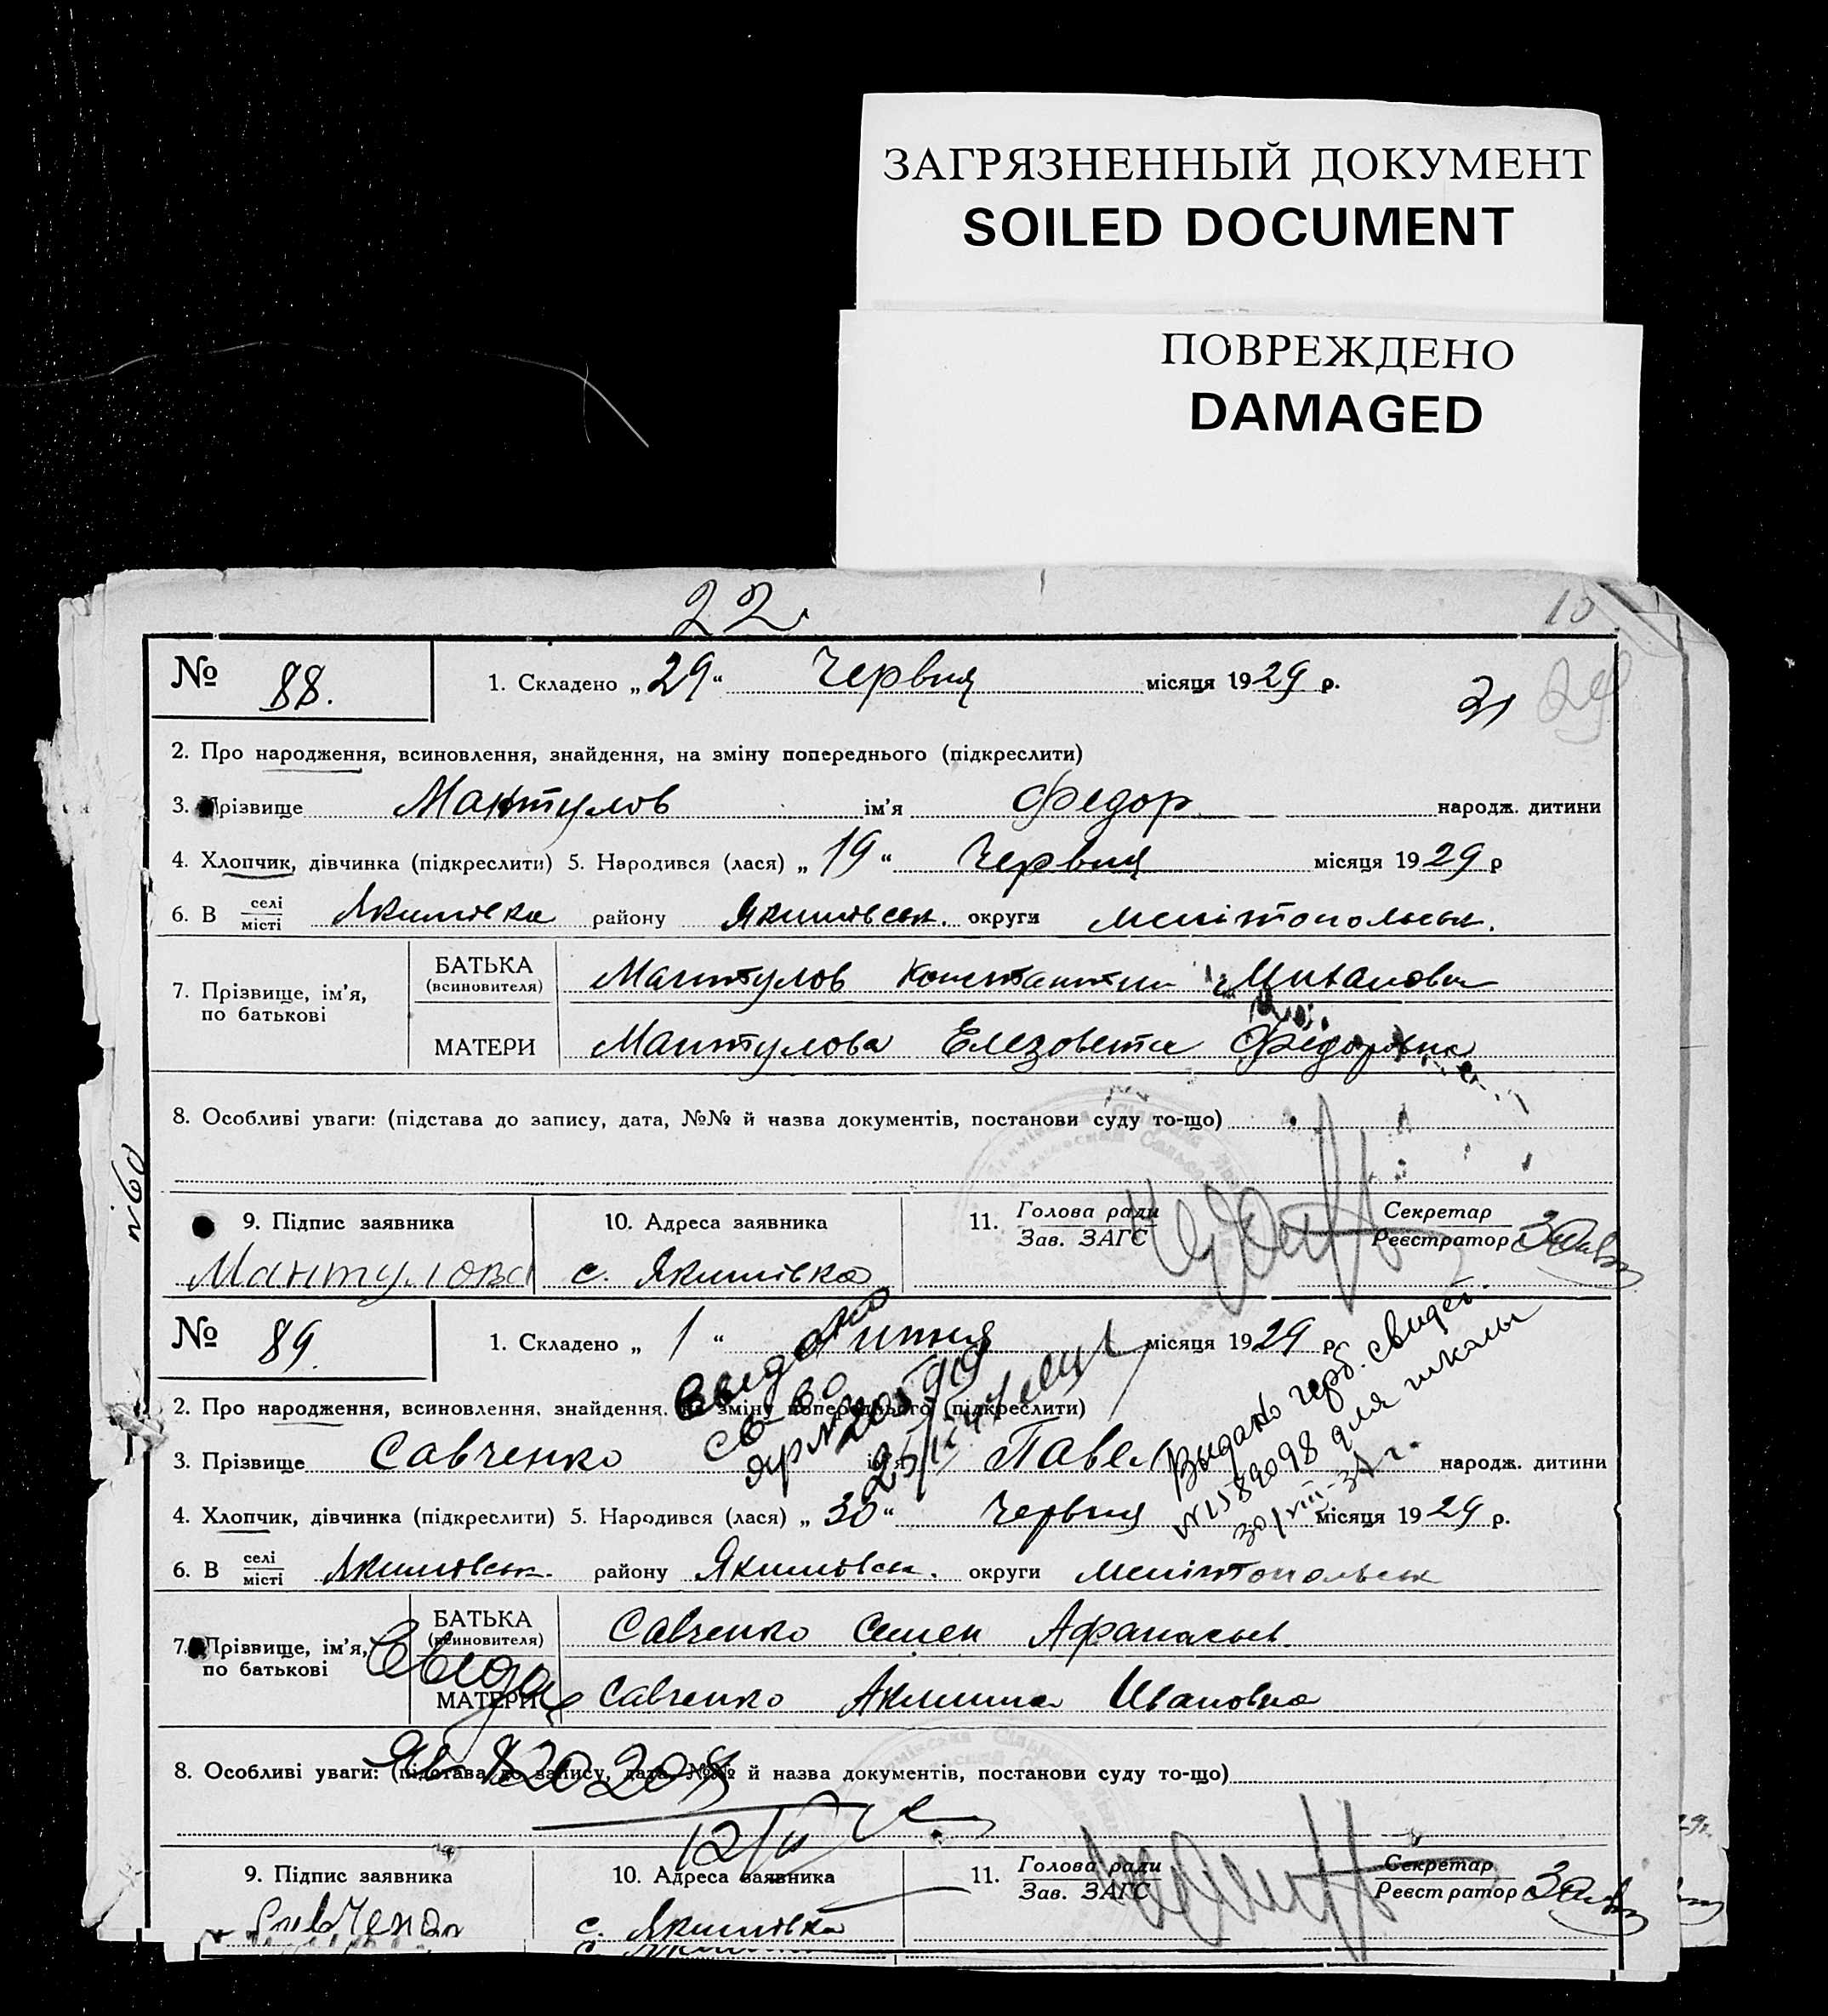 ЗАГРЯЗНЕННЫЙ ДОКУМЕНТ
SOILED DOCUMENT
ПОВРЕЖДЕНО
DAMAGED
22.
№ 88.
1. Складено „29“ Червня місяця 1929 р.
31
2. Про народження, всиновлення, знайдення, на зміну попереднього (підкреслити)
3. Прізвище Мантулов ім'я Федор народж. дитини
4. Хлопчик, дівчинка (підкреслити) 5. Народився (лася) „19“ Червня місяця 1929 р
6. В селі місті Якимівка району Якимівськ. округи Мелітопольськ.
7. Прізвище, ім'я, по батькові
БАТЬКА (всиновителя) Мантулов Константин
МАТЕРИ Мантулова Елезовета Федоровна
8. Особливі уваги: (підстава до запису, дата, №№ й назва документів, постанови суду то-що)
9. Підпис заявника
10. Адреса заявника
11. Голова ради Зав. ЗАГС
Секретар Реєстратор
Мантулова с. Якимівка
№ 89.
1. Складено „ 1 “ липня місяця 1929 р.
2. Про народження, всиновлення, знайдення, на зміну попереднього (підкреслити)
3. Прізвище Савченко ім'я Павел народж. дитини
4. Хлопчик, дівчинка (підкреслити) 5. Народився (лася) „30“ Червня місяця 1929 р.
6. В селі місті Якимівськ. району Якимовськ. округи Мелітопольськ
7. Прізвище, ім'я, по батькові
БАТЬКА (всиновителя) Савченко Семен Афанасьев.
МАТЕРИ Савченко Акилина Ивановна
8. Особливі уваги: (підстава до запису, дата, №№ й назва документів, постанови суду то-що)
Выдано герб. свидет.
№ 589098 для школы
30/VIII-37 г.
9. Підпис заявника
10. Адреса заявника
11. Голова ради Зав. ЗАГС
Секретар Реєстратор
с. Якимівка